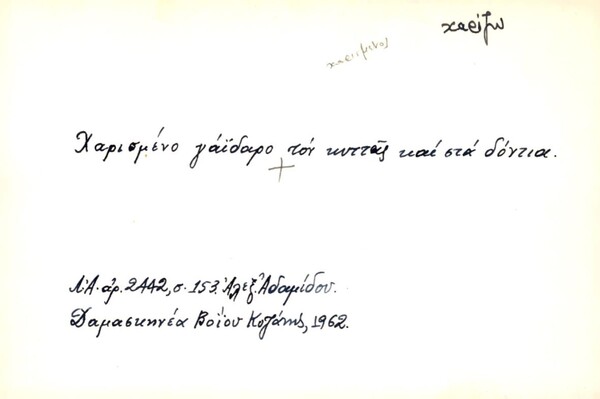 χαρίζω
χαρισμένος
Χαρισμένο γάϊδαρο τόν κυττᾶς καί στά δόντια.
Λ.Α. ἀρ. 2442, σ. 153. Ἀλεξ. Ἀδαμίδου.
Δαμασκηνέα Βοΐου Κοζάνης, 1962.